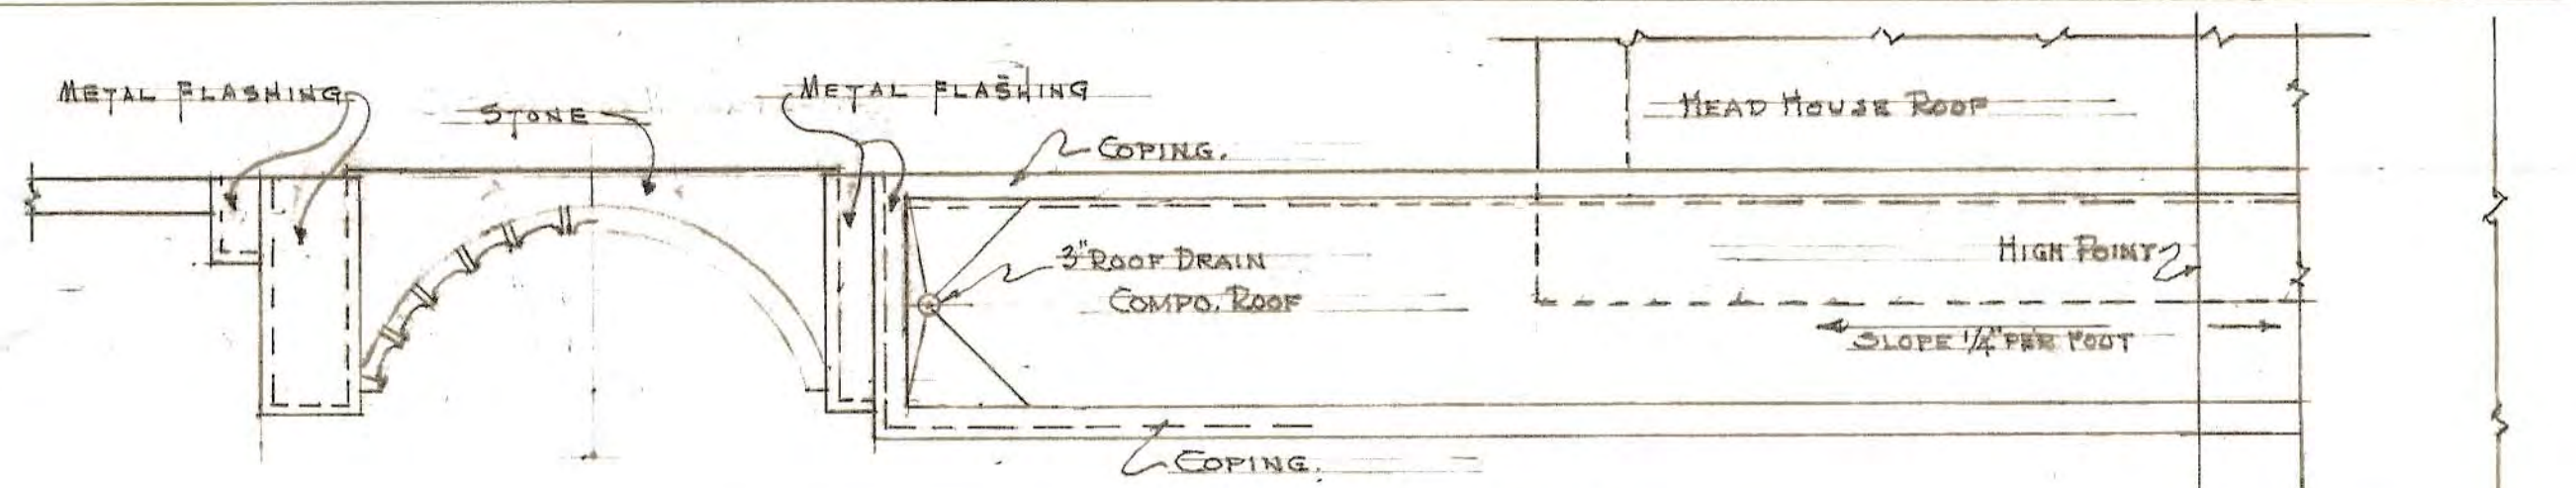 METAL FLASHING
STONE
METAL FLASHING
COPING.
HEAD HOUSE ROOF
3" ROOF DRAIN
COMPO. ROOF
HIGH POINT
SLOPE 1/4" PER FOOT
COPING.